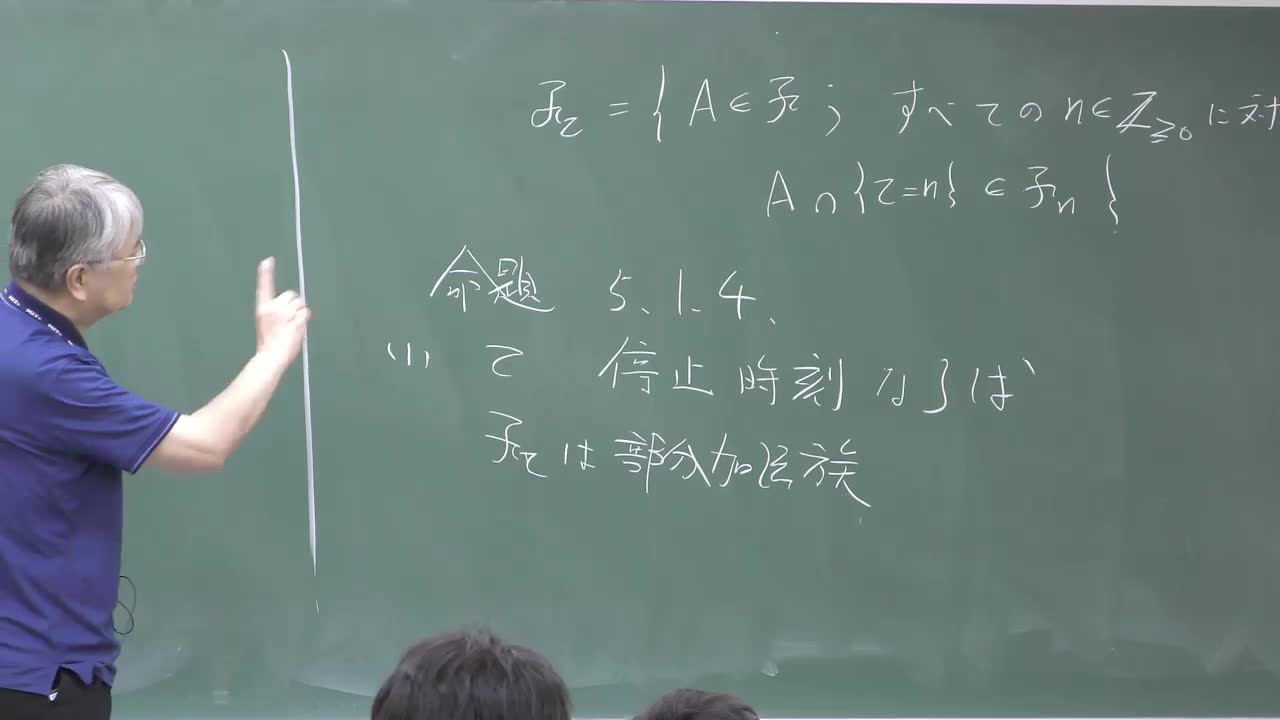 ℱ_τ = { A ∈ ℱ ; すべての n ∈ ℤ_{≥0} に対
A ∩ {τ = n} ∈ ℱ_n }
命題 5.1.4.
(1) τ 停止時刻ならば
ℱ_τ は部分加法族